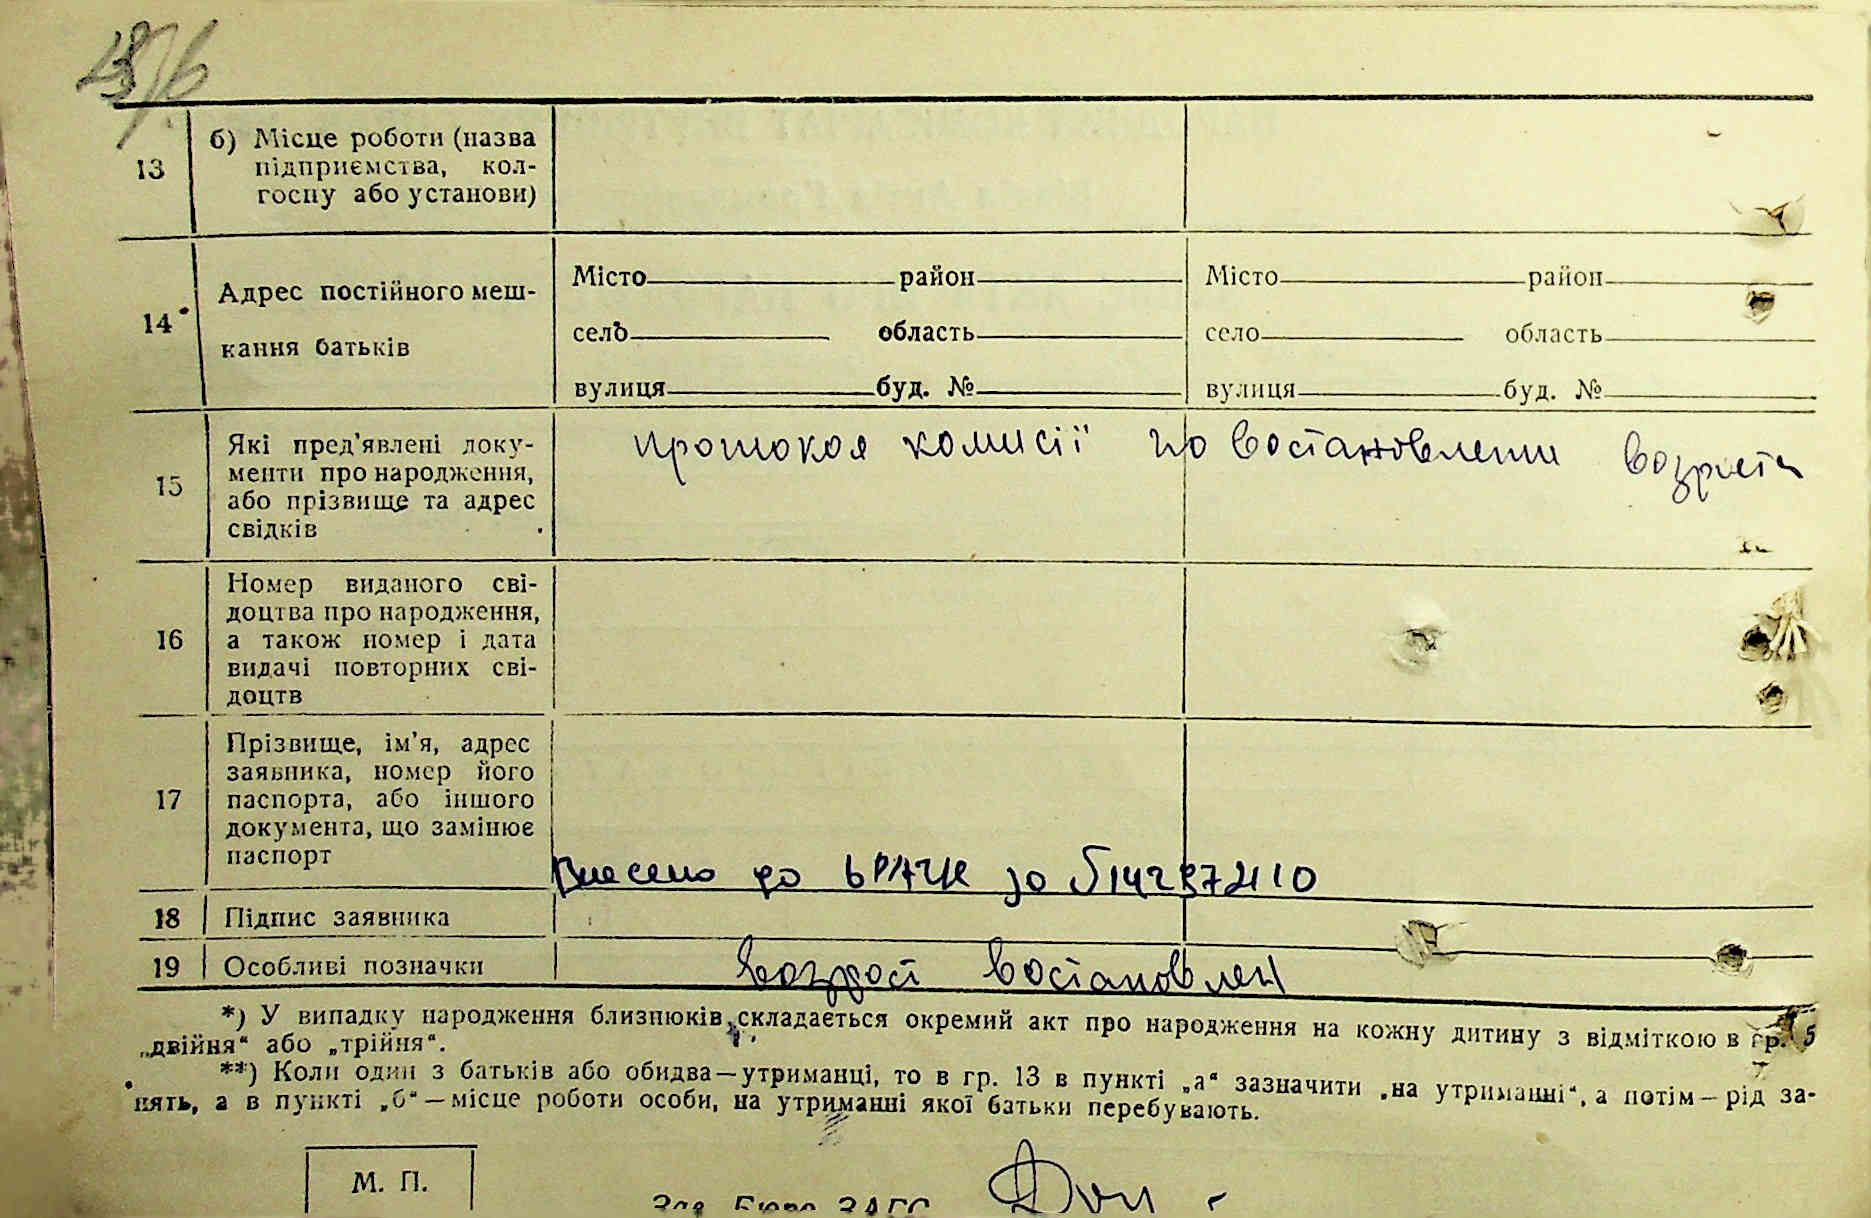 13
б) Місце роботи (назва
підприємства, кол-
госпу або установи)
14
Адрес постійного меш-
кання батьків
Місто район
село область
вулиця буд. №
Місто район
село область
вулиця буд. №
15
Які пред'явлені доку-
менти про народження,
або прізвище та адрес
свідків
протокол комисії по востановлении возраста
16
Номер виданого сві-
доцтва про народження,
а також номер і дата
видачі повторних сві-
доцтв
17
Прізвище, ім'я, адрес
заявника, номер його
паспорта, або іншого
документа, що замінює
паспорт
Внесено до за
18 Підпис заявника
19 Особливі позначки
возраст востановлен
*) У випадку народження близнюків, складається окремий акт про народження на кожну дитину з відміткою в гр. 5
„двійня“ або „трійня“.
**) Коли один з батьків або обидва—утриманці, то в гр. 13 в пункті „а“ зазначити „на утриманні“, а потім—рід за-
нять, а в пункті „б“—місце роботи особи, на утриманні якої батьки перебувають.
М. П.
Зав. Бюро ЗАГС